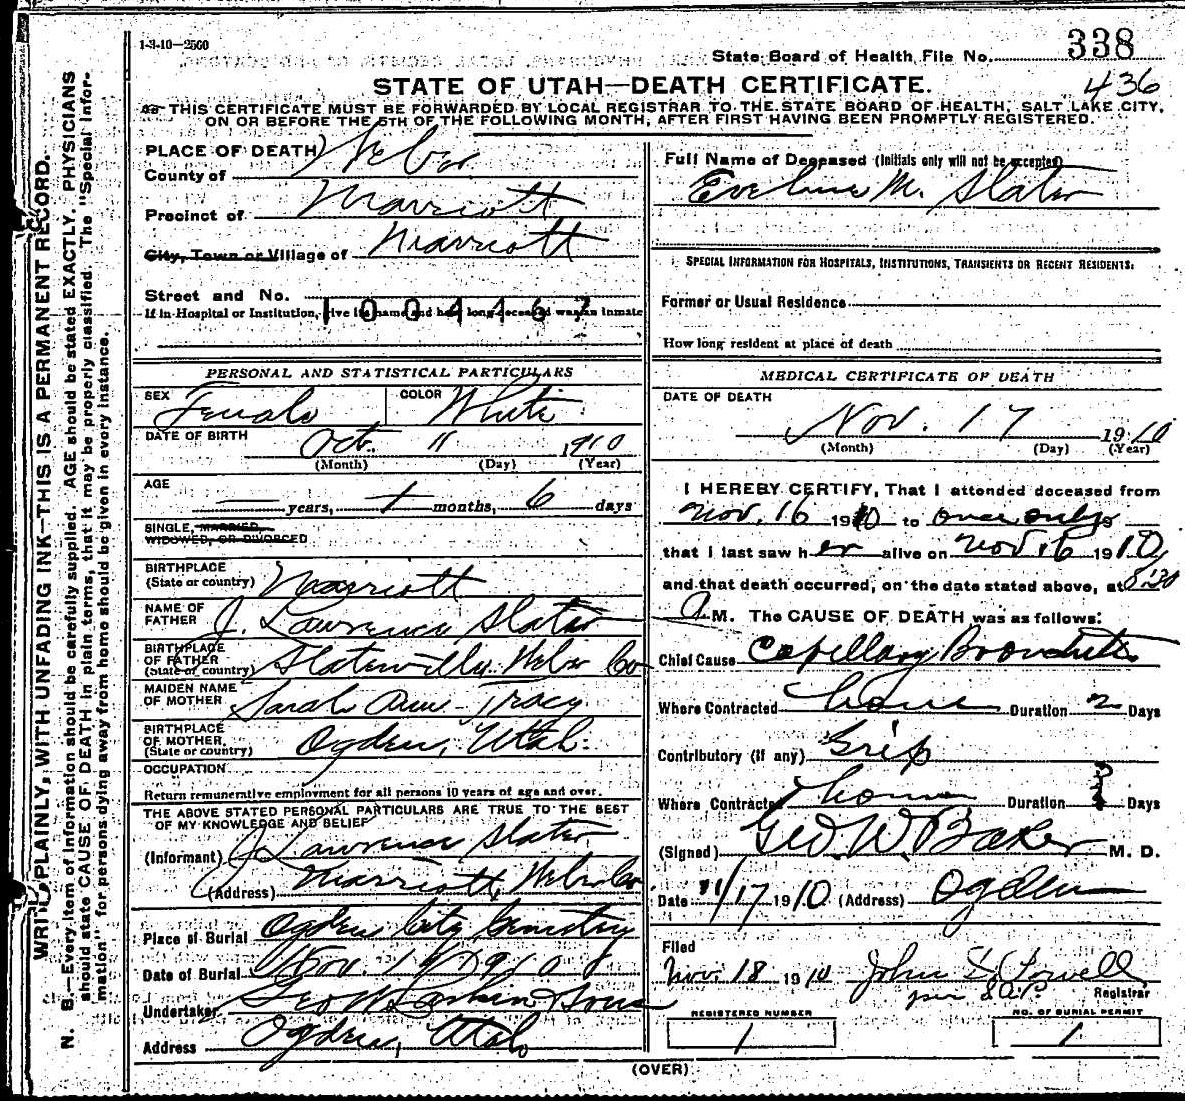 1-3-10—2500
State Board of Health File No. 338
436
STATE OF UTAH—DEATH CERTIFICATE.
THIS CERTIFICATE MUST BE FORWARDED BY LOCAL REGISTRAR TO THE STATE BOARD OF HEALTH, SALT LAKE CITY,
ON OR BEFORE THE 5TH OF THE FOLLOWING MONTH, AFTER FIRST HAVING BEEN PROMPTLY REGISTERED.
WRITE PLAINLY, WITH UNFADING INK—THIS IS A PERMANENT RECORD.
N. B.—Every item of information should be carefully supplied. AGE should be stated EXACTLY. PHYSICIANS
should state CAUSE OF DEATH in plain terms, that it may be properly classified. The "Special Infor-
mation" for persons dying away from home should be given in every instance.
PLACE OF DEATH
County of Weber
Precinct of Marriott
City, Town or Village of Marriott
Street and No.
1004467
If in Hospital or Institution, give its name and how long deceased was an inmate
PERSONAL AND STATISTICAL PARTICULARS
SEX Female COLOR White
DATE OF BIRTH Oct. 11 1910
(Month) (Day) (Year)
AGE
years, 1 months, 6 days
SINGLE, MARRIED,
WIDOWED, OR DIVORCED
BIRTHPLACE
(State or country) Marriott
NAME OF
FATHER J. Lawrence Slater
BIRTHPLACE
OF FATHER
(State or country) Slaterville, Weber Co
MAIDEN NAME
OF MOTHER Sarah Ann Tracy
BIRTHPLACE
OF MOTHER
(State or country) Ogden, Utah
OCCUPATION
Return remunerative employment for all persons 10 years of age and over.
THE ABOVE STATED PERSONAL PARTICULARS ARE TRUE TO THE BEST
OF MY KNOWLEDGE AND BELIEF
(Informant) J. Lawrence Slater
(Address) Marriott, Weber Co
Place of Burial Ogden City Cemetery
Date of Burial Nov. 19 1910
Undertaker Geo W Larkin & Sons
Address Ogden, Utah
Full Name of Deceased (Initials only will not be accepted)
Eveline M. Slater
SPECIAL INFORMATION FOR HOSPITALS, INSTITUTIONS, TRANSIENTS OR RECENT RESIDENTS:
Former or Usual Residence
How long resident at place of death
MEDICAL CERTIFICATE OF DEATH
DATE OF DEATH
Nov. 17 1910
(Month) (Day) (Year)
I HEREBY CERTIFY, That I attended deceased from
Nov. 16 1910 to once only
that I last saw her alive on Nov 16 1910,
and that death occurred, on the date stated above, at 8:30
A M. The CAUSE OF DEATH was as follows:
Chief Cause Capillary Bronchitis
Where Contracted home Duration 2 Days
Contributory (if any) Grip
Where Contracted home Duration Days
(Signed) Geo. W. Baker M. D.
Date 11/17 1910 (Address) Ogden
Filed
Nov. 18 1910 John D. Lowell
per S.A.P. Registrar
REGISTERED NUMBER
1
NO. OF BURIAL PERMIT
1
(OVER)